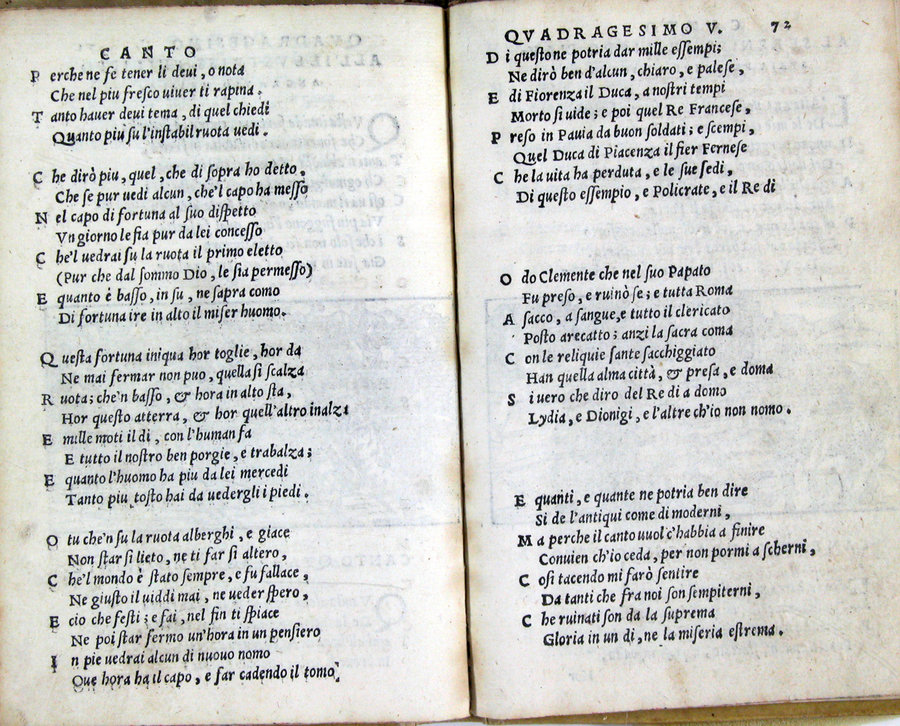 CANTO
Perche ne se tener li deui, o nota
Che nel piu fresco uiuer ti rapina.
Tanto hauer deui tema, di quel chiedi
Quanto piu su l'instabil ruota uedi.
Che dirò piu, quel, che di sopra ho detto,
Che se pur uedi alcun, che'l capo ha messo
Nel capo di fortuna al suo dispetto
Vn giorno le fia pur da lei concesso
Che'l uedrai su la ruota il primo eletto
(Pur che dal sommo Dio, le sia permesso)
E quanto è basso, in su, ne sapra como
Di fortuna ire in alto il miser huomo.
Questa fortuna iniqua hor toglie, hor da
Ne mai fermar non puo, quella si scalza
Ruota; che'n basso, & hora in alto sta,
Hor questo atterra, & hor quell'altro inalza
E mille moti il di, con l'human fa
E tutto il nostro ben porgie, e trabalza;
E quanto l'huomo ha piu da lei mercedi
Tanto piu tosto hai da uedergli i piedi.
O tu che'n su la ruota alberghi, e giace
Non star sì lieto, ne ti far sì altero,
Che'l mondo è stato sempre, e fu fallace,
Ne giusto il uiddi mai, ne ueder spero,
E cio che festi; e fai, nel fin ti spiace
Ne poi star fermo un'hora in un pensiero
In pie uedrai alcun di nuouo nomo
Que hora ha il capo, e far cadendo il tomo.
QVADRAGESIMO V. 72
Di questo ne potria dar mille essempi;
Ne dirò ben d'alcun, chiaro, e palese,
E di Fiorenza il Duca, a nostri tempi
Morto si uide; e poi quel Re Francese,
Preso in Pauia da buon soldati; e scempi,
Quel Duca di Piacenza il fier Fernese
Che la uita ha perduta, e le sue sedi,
Di questo essempio, e Policrate, e il Re di
Odo Clemente che nel suo Papato
Fu preso, e ruinò se; e tutta Roma
A sacco, a sangue, e tutto il clericato
Posto arecatto; anzi la sacra coma
Con le reliquie sante sacchiggiato
Han quella alma città, & presa, e doma
Si uero che diro del Re di a domo
Lydia, e Dionigi, e l'altre ch'io non nomo.
E quanti, e quante ne potria ben dire
Si de l'antiqui come di moderni,
Ma perche il canto uuol c'habbia a finire
Conuien ch'io ceda, per non pormi a scherni,
Cosi tacendo mi farò sentire
Da tanti che fra noi son sempiterni,
Che ruinati son da la suprema
Gloria in un di, ne la miseria estrema.